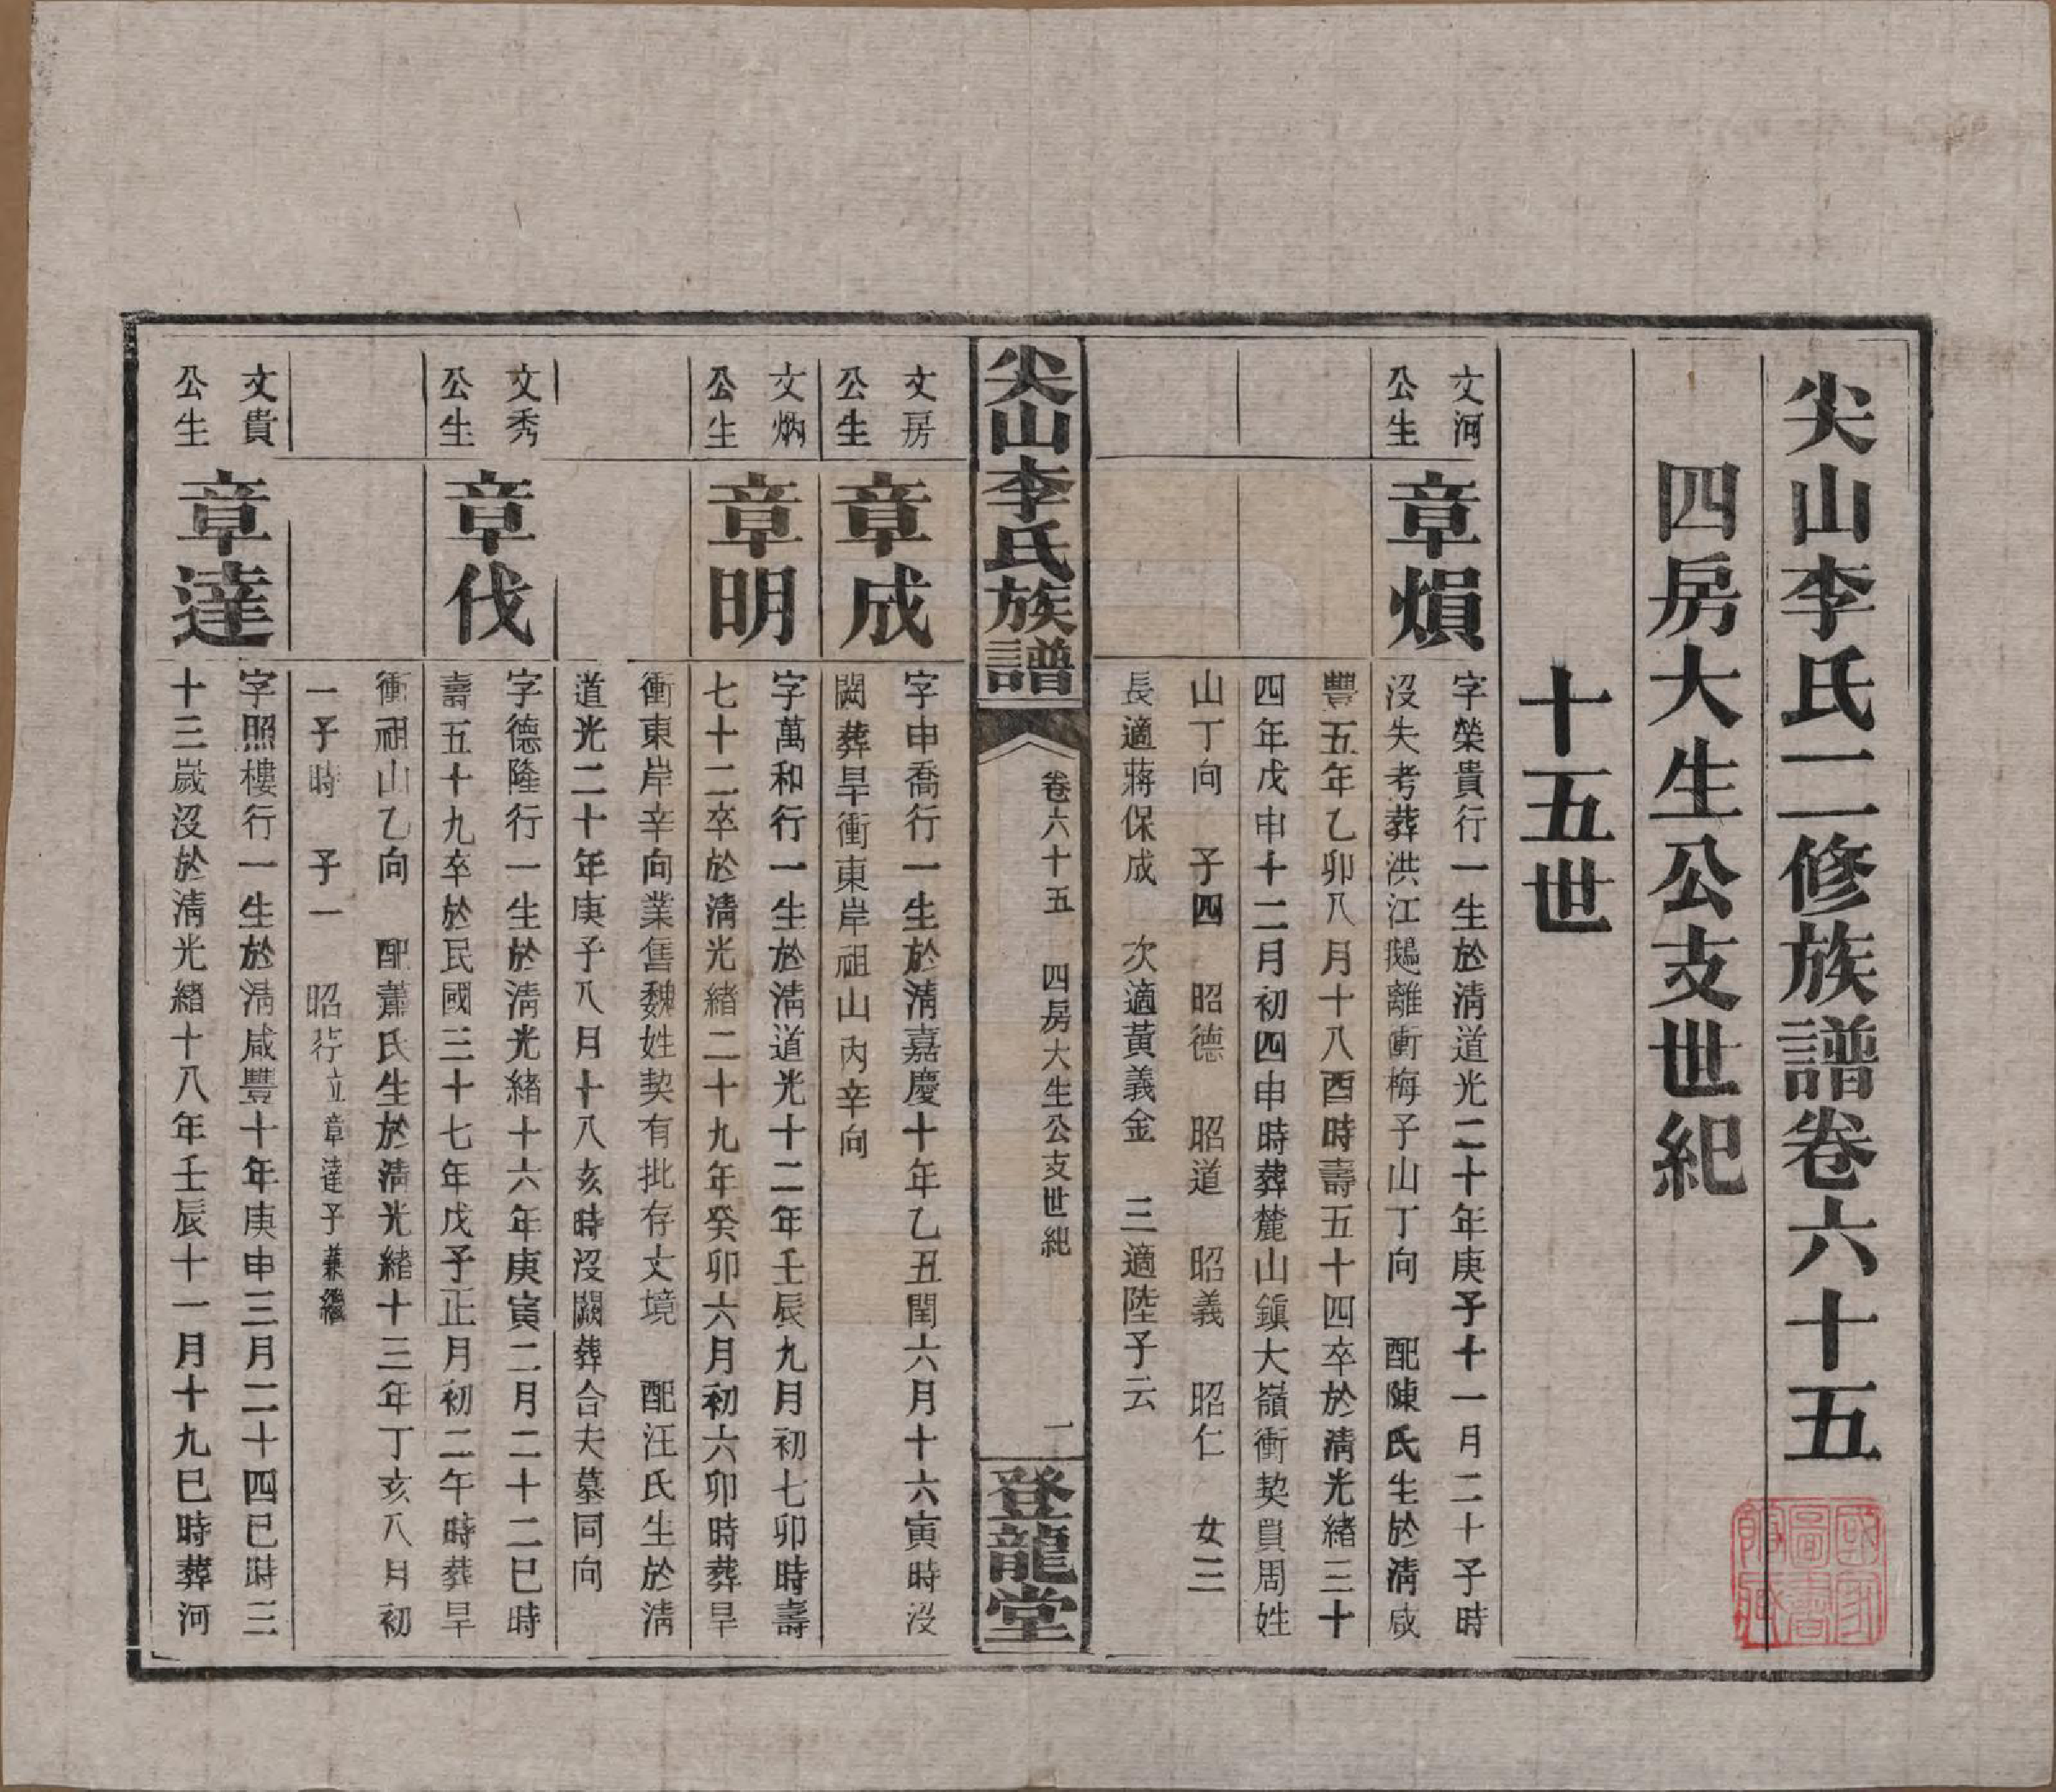 尖山李氏二修族譜卷六十五
四房大生公支世紀
十五世
文河
公生
章熉
字榮貴行一生於淸道光二十年庚子十一月二十子時
沒失考葬洪江鵝離衝梅子山丁向 配陳氏生於淸咸
豐五年乙卯八月十八酉時壽五十四卒於淸光緒三十
四年戊申十二月初四申時葬麓山鎭大嶺衝契買周姓
山丁向 子四 昭德 昭道 昭義 昭仁 女三
長適蔣保成 次適黃義金 三適陸予云
尖山李氏族譜
卷六十五 四房大生公支世紀
一
登龍堂
文房
公生
章成
字申喬行一生於淸嘉慶十年乙丑閏六月十六寅時沒
闕葬旱衝東岸祖山內辛向
文炳
公生
章明
字萬和行一生於淸道光十二年壬辰九月初七卯時壽
七十二卒於淸光緒二十九年癸卯六月初六卯時葬旱
衝東岸辛向業售魏姓契有批存文境 配汪氏生於淸
道光二十年庚子八月十八亥時沒闕葬合夫墓同向
文秀
公生
章伐
字德隆行一生於淸光緒十六年庚寅二月二十二巳時
壽五十九卒於民國三十七年戊子正月初二午時葬旱
衝祖山乙向 配蕭氏生於淸光緒十三年丁亥八月初
一子時 子一 昭行立章達子兼繼
文貴
公生
章達
字照樓行一生於淸咸豐十年庚申三月二十四巳時三
十三歲沒於淸光緒十八年壬辰十一月十九巳時葬河
國家圖書館藏